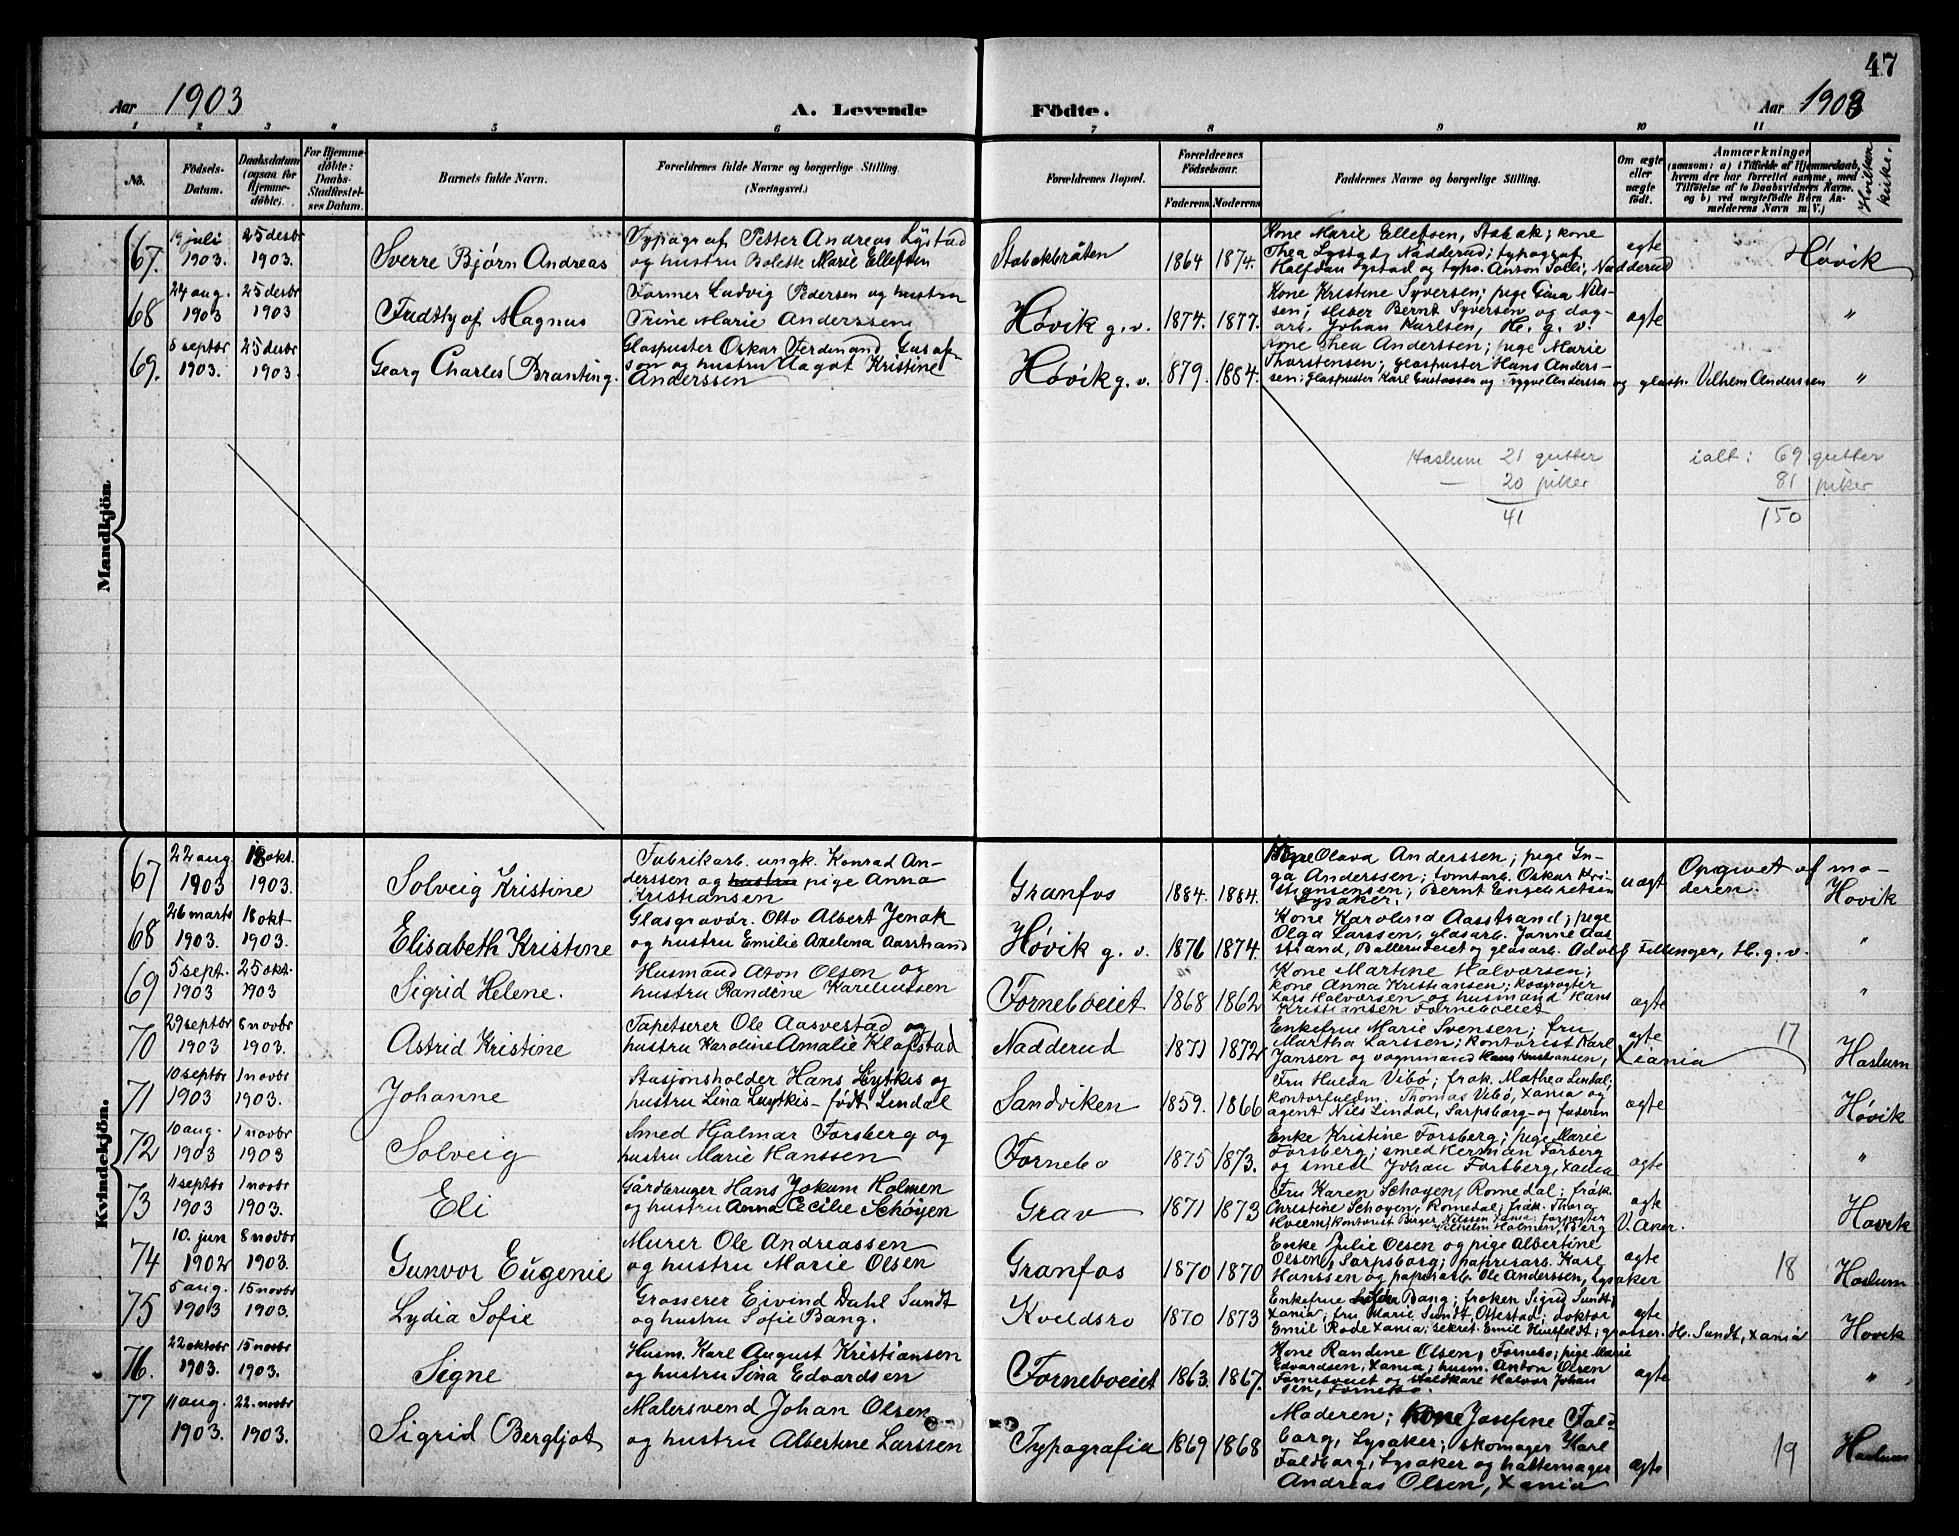 47
Aar 1903
A. Levende Födte.
Aar 1903
1 2 3 4 5 6 7 8 9 10 11
No.
Födsels-Datum.
Daabsdatum (ogsaa for Hjemme-döbte).
For Hjemme-döbte: Daabs-Stadfæstel-ses Datum.
Barnets fulde Navn.
Forældrenes fulde Navne og borgerlige Stilling.
(Næringsvei.)
Forældrenes Bopæl.
Forældrenes Födselsaar.
Faderens. Moderens.
Faddernes Navne og borgerlige Stilling.
Om ægte eller uægte födt.
Anmærkninger
(saasom: a) i Tilfælde af Hjemmedaab, hvem der har forrettet samme, med Tilföielse af to Daabsvidners Navne. og b) ved uægtefödte Börn An-melderens Navn m. V.)
Hvilken kirke.
Mandkjön.
67. 19 juli 1903. 25 desbr 1903. Sverre Bjørn Andreas
Typograf Petter Andreas Lystad
og hustru Bolette Marie Ellefsen
Stabækbråten 1864 1874.
Kone Marie Ellefsen, Stabæk; kone
Thea Lystad, Nadderud; typograf
Halfdan Lystad og typo. Anton Solli, Nadderud
ægte Høvik
68 24 aug. 1903 25 desbr 1903 Fridtyof Magnus
Former Ludvig Pedersen og hustru
Trine Marie Anderssen
Høvik g. v. 1874. 1877.
Kone Kristine Syversen; pige Gina Nils-
sen; sliber Bernt Syversen og dag-
arb. Johan Karlsen, H. g. v.
ægte "
69. 5 septbr 1903. 25 desbr 1903. Georg Charles Branting.
Glaspuster Oskar Ferdinand Gustaf-
son og hustru Aagot Kristine
Anderssen
Høvik g. v. 1879. 1884.
Kone Thea Anderssen; pige Marie
Thorstensen; glaspuster Hans Anders-
sen; Glaspuster Karl Gustavsen og Trygve Anderssen og glasp. Vilhelm Anderssen "
Haslum 21 gutter
— 20 piker
41
ialt: 69 gutter
81 piker
150
Kvindekjön.
67 22 aug. 1903 18 okt. 1903. Solveig Kristine
Fabrikarb. ungk. Konrad An-
derssen og hustru pige Anna
Kristiansen
Granfos 1884. 1884.
Pige Olava Anderssen; pige In-
ga Anderssen; tomtarb. Oskar Kri-
stiansensen; Bernt Engebretsen
Lysaker.
uægt Opgivet af mo-
deren. Høvik
68 26 marts 1903. 18 okt 1903. Elisabeth Kristine
Glasgravør. Otto Albert Jenak
og hustru Emilie Axelena Aasstrand
Høvik g. v. 1876 1874.
Kone Karolina Aasstrand; pige
Olga Larssen, glasarb. Janne Aas-
strand, Balleruveiet og glasarb. Adolf Fillinger, H. g. v. "
69 5 sept. 1903 25 okt. 1903 Sigrid Helene.
Husmand Aton Olsen og
hustru Randine Kariniussen
Forneboeiet 1868 1862
Kone Martine Halvorsen;
kone Anna Kristiansen; kvægrøgter
Lars Halvorsen og husmand Hans
Kristiansen Forneboeiet
ægte "
70 29 septbr 1903 8 novbr 1903. Astrid Kristine
Tapetserer Ole Aasvestad og
hustru Karoline Amalie Klofstad
Nadderud 1871 1872
Enkefrue Marie Svensen; fru
Martha Larssen; kontorist Karl
Jansen og vognmand Hans Kristiansen, Xiania
ægte 17 Haslum
71 10 septbr 1903 1 novbr 1903. Johanne
Stasjonsholder Hans Lytkis og
hustru Lina Luytkis - født Lindal
Sandviken 1859. 1866
Fru Hulda Vibø; frøk. Mathea Lindal;
kontorfuldm. Thomas Vibø, Xania og
agent Nils Lindal, Sarpsborg - og faderen
ægte Høvik
72 10 aug. 1903 1 novbr 1903 Solveig
Smed Hjalmar Forsberg og
hustru Marie Hanssen
Fornebo 1875 1873.
Enke Kristine Forsberg; pige Marie
Forsberg; smed Herman Forberg
og smed Johan Forsberg, Xania
ægte "
73 4 septbr 1903 1 novbr 1903. Eli
Gårdbruger Hans Jokum Holmen
og hustru Anna Cecilie Schøyen
Grav 1871 1873
Fru Karen Schøyen, Romedal; frøk.
Christine Schøyen, Romedal; frøk. Thora
Hveem; kontorist Birger Nilssen Xania; forpagter
Vilhelm Holmen, Berg V. Aker.
ægt Høvik
74 10. jun 1902 8 novbr 1903. Gunvor Eugenie
Murer Ole Andreassen
og hustru Marie Olsen
Granfos 1870 1870
Enke Julie Olsen og pige Albertine
Olsen, Sarpsborg; papirarb. Karl
Hanssen og papirarb. Ole Anderssen, Lysaker
ægte 18 Haslum
75 5 aug. 1903 15 novbr 1903. Lydia Sofie
Grosserer Eivind Dahl Sundt
og hustru Sofie Bang.
Kveldsro 1870 1873
Enkefrue Bang; frøken Sigrid Sundt;
Xania; fru Marie Sundt, Ottestad; doktor
Emil Rode Xania; sekret. Emil Huitfeldt; grosser. H. Sundt, Xania
ægte Høvik
76. 22 oktobr 1903. 15 novbr 1903. Signe
Husm. Karl August Kristiansen
og hustru Sina Edvardsen
Forneboeiet 1863. 1867.
Kone Randine Olsen, Fornebo; pige Marie
Edvardsen, Xania; husm. Anton Olsen
Forneboeiet og staldkarl Halvor Johan
sen, Fornebo.
ægte "
77 11 aug. 1903. 22. novbr 1903. Sigrid Bergljot
Malersvend Johan Olsen
og hustru Albertine Larssen
Typografia 1869 1868
Moderen; kone Josefine Fald-
borg, Lysaker; skomager Karl
Faldborg, Lysaker og hattemager
Andreas Olsen, Xania
ægte 19 Haslum